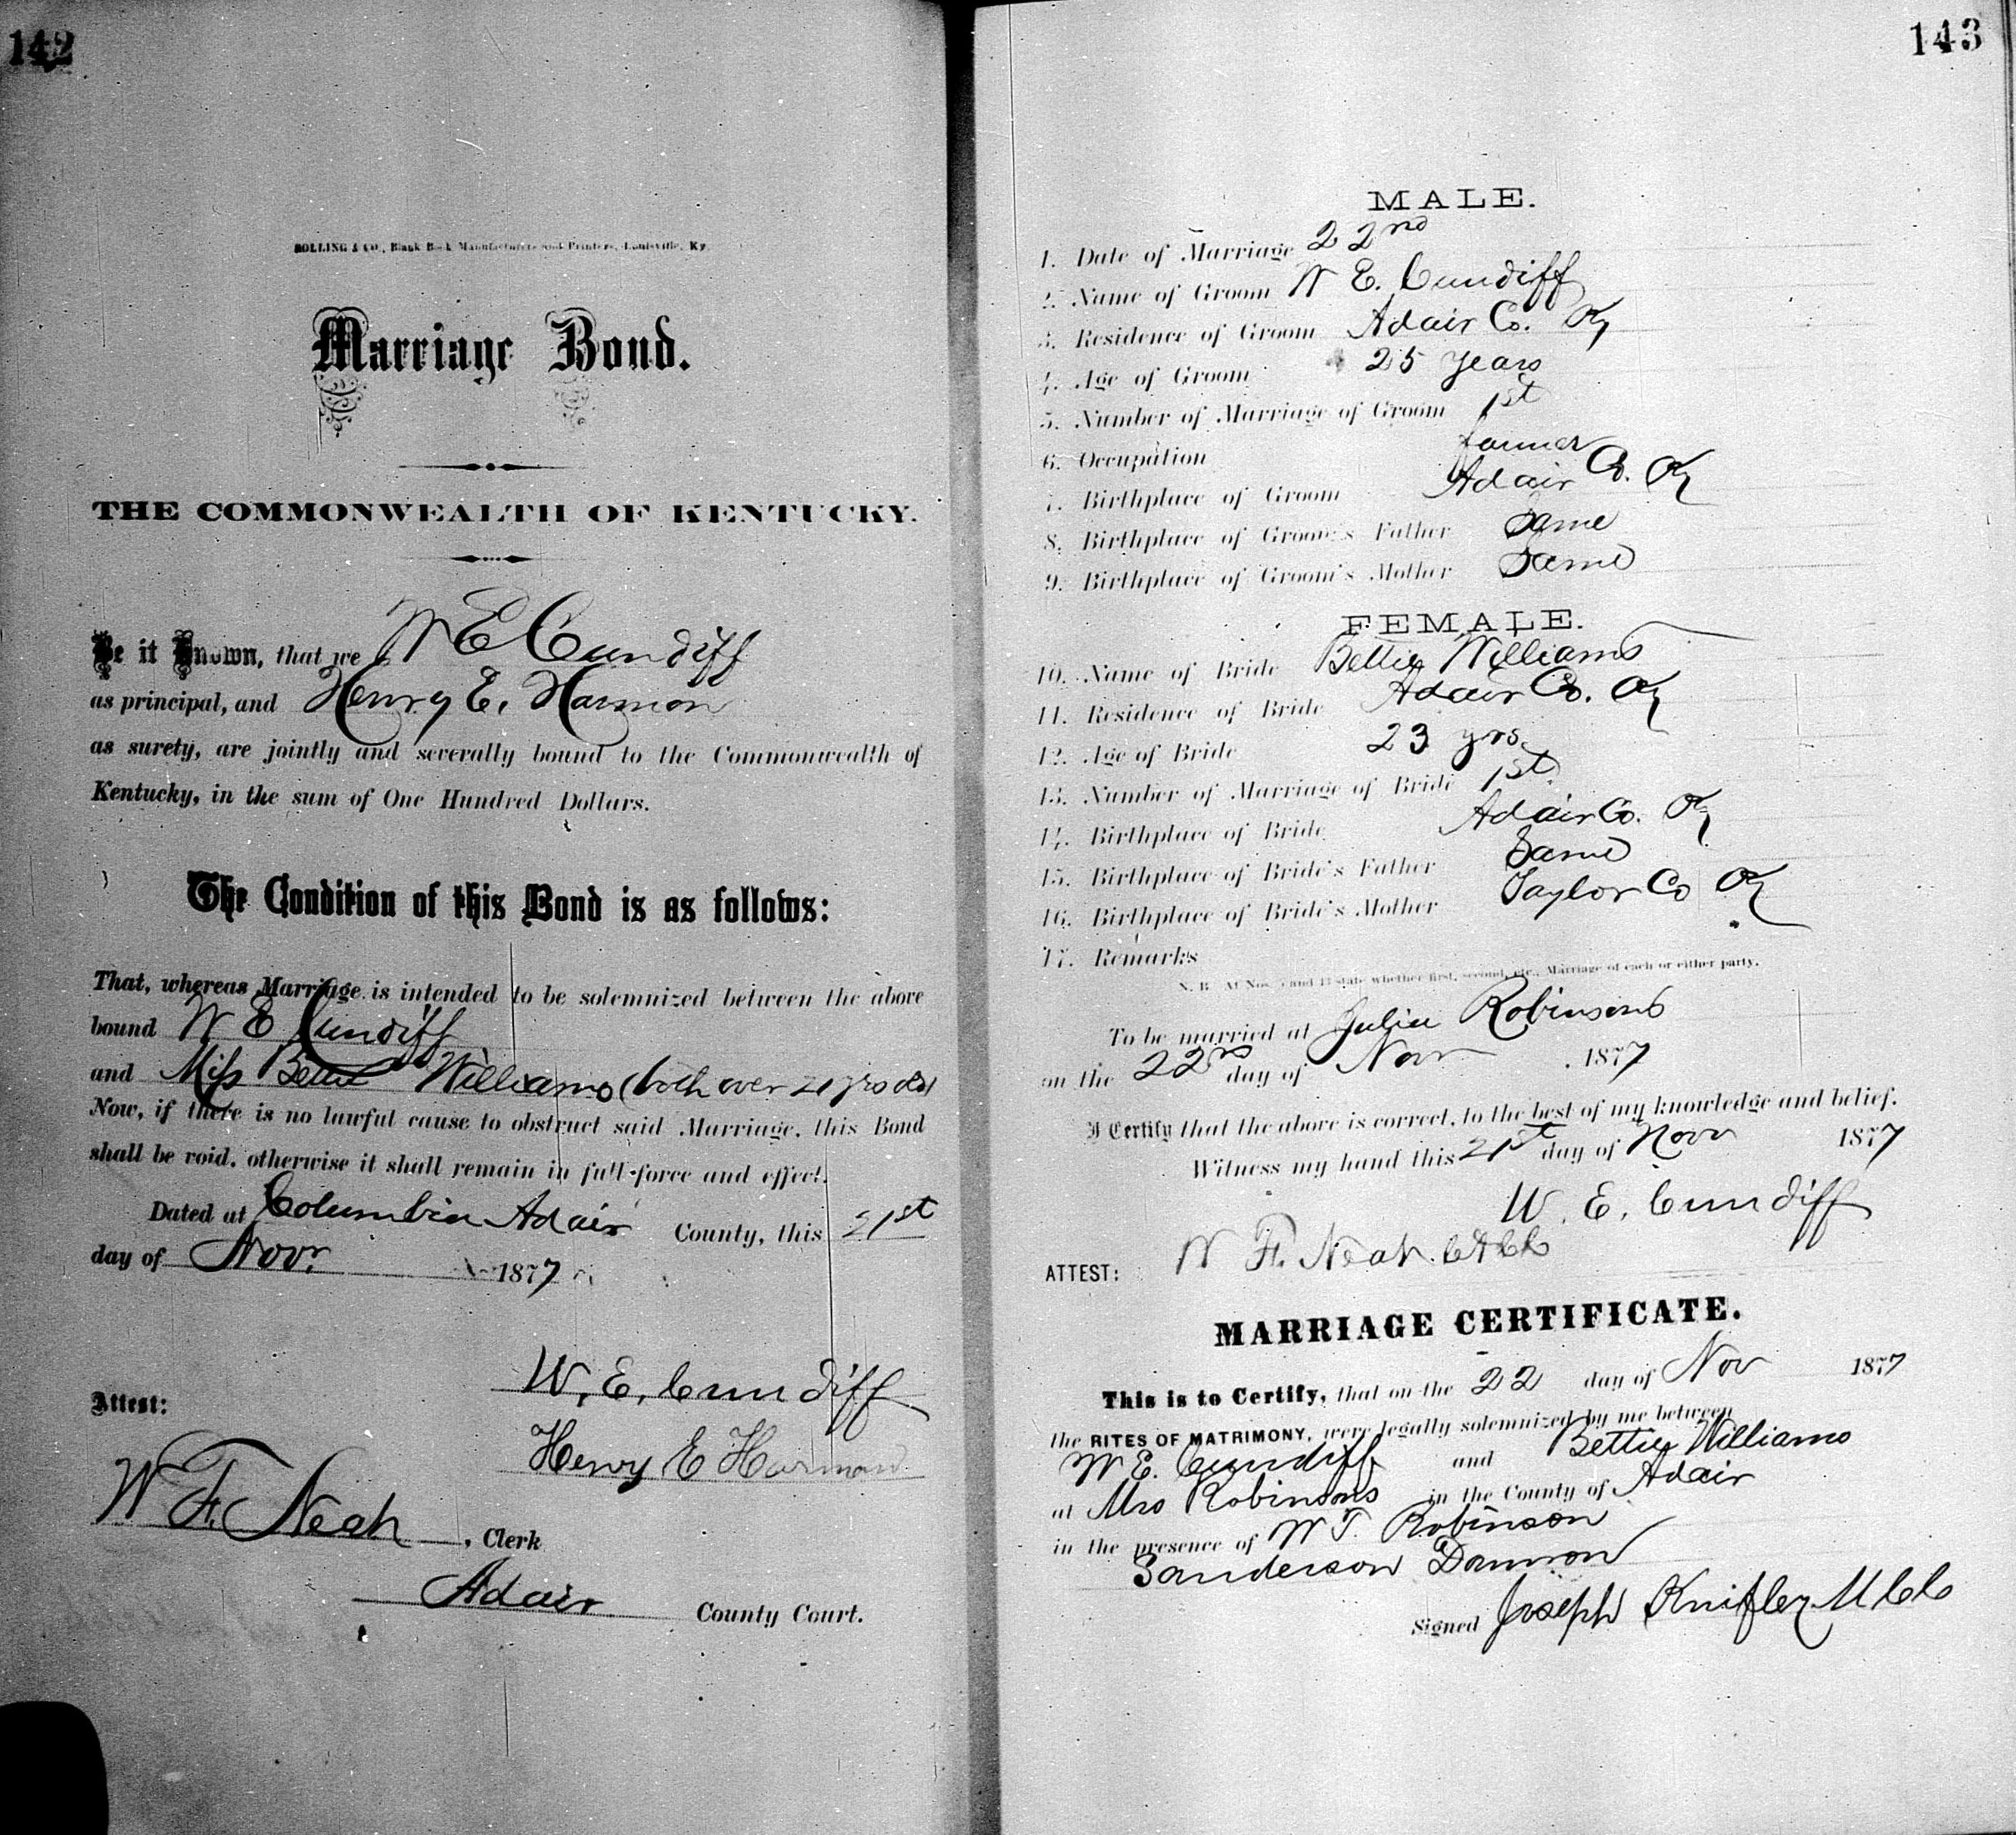 142
BOLLING & CO., Blank Book Manufacturers and Printers, Louisville, Ky.
Marriage Bond.
THE COMMONWEALTH OF KENTUCKY.
Be it Known, that we W E Cundiff
as principal, and Henry E. Harmon
as surety, are jointly and severally bound to the Commonwealth of
Kentucky, in the sum of One Hundred Dollars.
The Condition of this Bond is as follows:
That, whereas Marriage is intended to be solemnized between the above
bound W E Cundiff
and Miss Bettie Williams (both over 21 yrs old)
Now, if there is no lawful cause to obstruct said Marriage, this Bond
shall be void, otherwise it shall remain in full force and effect.
Dated at Columbia Adair County, this 21st
day of Novr. 1877
W. E. Cundiff
Attest:
Henry E Harmon
W. F. Neat, Clerk
Adair County Court.
143
MALE.
1. Date of Marriage 22nd
2. Name of Groom W E. Cundiff
3. Residence of Groom Adair Co. Ky
4. Age of Groom 25 years
5. Number of Marriage of Groom 1st
6. Occupation farmer
7. Birthplace of Groom Adair Co. Ky
8. Birthplace of Groom's Father Same
9. Birthplace of Groom's Mother Same
FEMALE.
10. Name of Bride Bettie Williams
11. Residence of Bride Adair Co. Ky
12. Age of Bride 23 yrs
13. Number of Marriage of Bride 1st
14. Birthplace of Bride Adair Co. Ky
15. Birthplace of Bride's Father Same
16. Birthplace of Bride's Mother Taylor Co Ky
17. Remarks
N. B. At Nos. 5 and 13 state whether first, second, etc., Marriage of each or either party.
To be married at Julia Robinsons
on the 22nd day of Nov 1877
I Certify that the above is correct, to the best of my knowledge and belief.
Witness my hand this 21st day of Novr 1877
W. E. Cundiff
ATTEST: W F. Neat
MARRIAGE CERTIFICATE.
This is to Certify, that on the 22 day of Nov 1877
the RITES OF MATRIMONY, were legally solemnized by me between
W E. Cundiff and Bettie Williams
at Mrs Robinsons in the County of Adair
in the presence of W T. Robinson
Sanderson
Signed Joseph Knifley